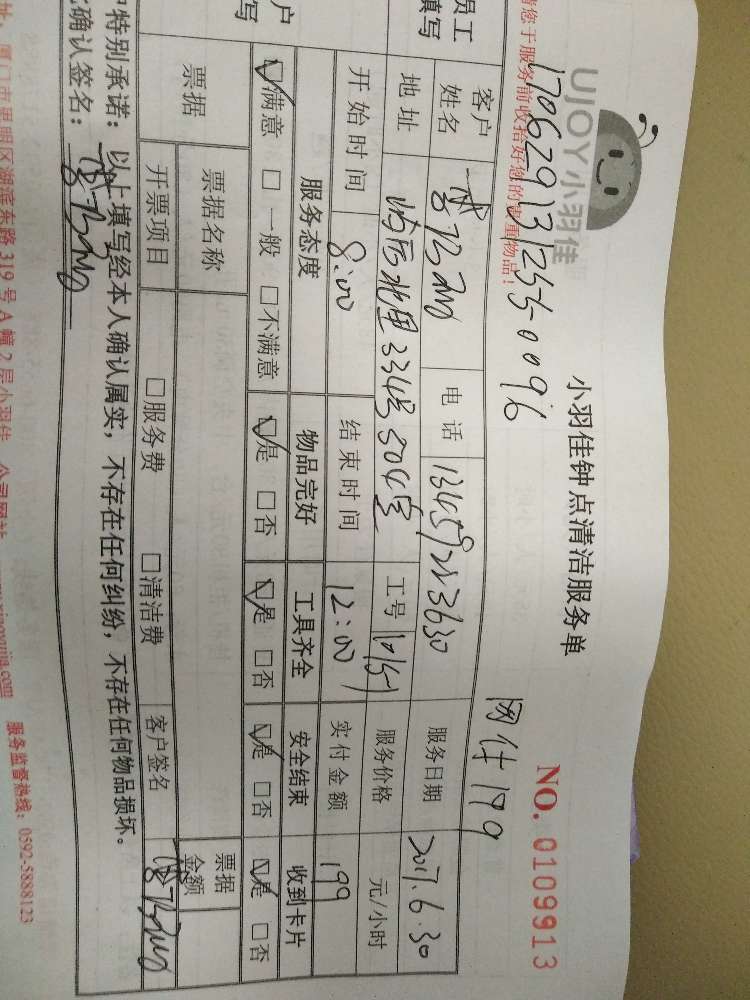 UJOY 小羽佳
小羽佳钟点清洁服务单
NO. 0109913
请您于服务前收拾好您的贵重物品!
170629131255-0096
网付199
员工
填写
客户
姓名
电话
13459223630
服务日期
2017.6.30
地址
北里334号504室
工号
10151
服务价格
元/小时
开始时间
8:00
结束时间
12:00
实付金额
199
户
写
服务态度
物品完好
工具齐全
安全结束
收到卡片
☑满意 □一般 □不满意
☑是 □否
☑是 □否
☑是 □否
☑是 □否
票据
票据名称
票据
金额
开票项目
□服务费
□清洁费
客户签名
特别承诺:以上填写经本人确认属实,不存在任何纠纷,不存在任何物品损坏。
确认签名:
厦门市思明区湖滨东路319号A幢2层小羽佳 公司网站 www.xiaoyujia.com 服务监督热线:0592-5888123